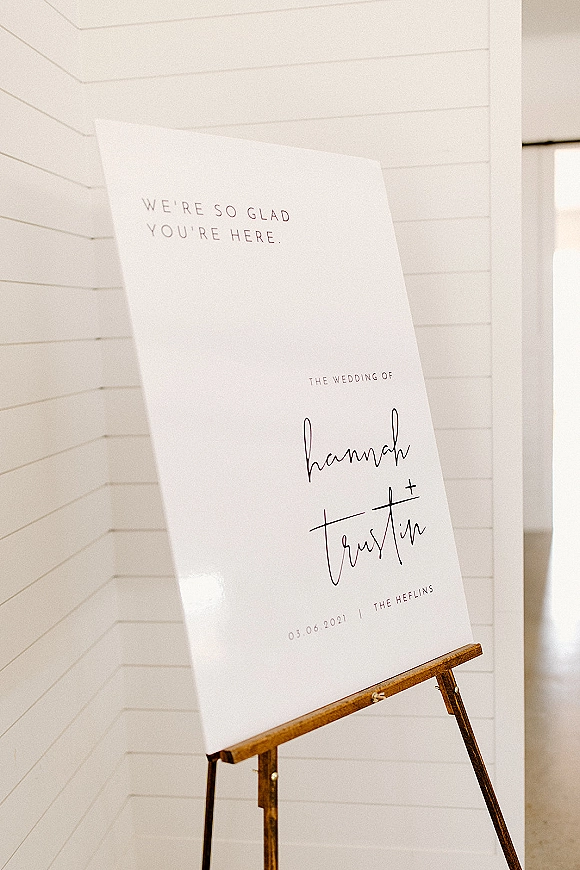 WE'RE SO GLAD
YOU'RE HERE.
THE WEDDING OF
hannah
+
trustin
03.06.2021 | THE HEFLINS